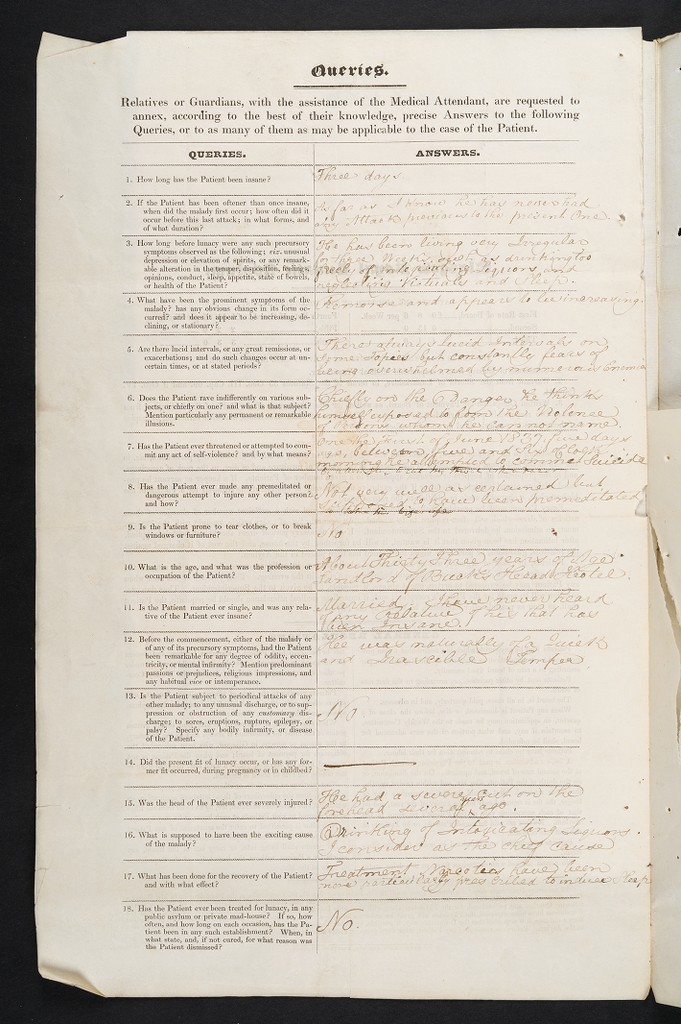 Queries.
Relatives or Guardians, with the assistance of the Medical Attendant, are requested to
annex, according to the best of their knowledge, precise Answers to the following
Queries, or to as many of them as may be applicable to the case of the Patient.
QUERIES.
ANSWERS.
1. How long has the Patient been insane?
Three days
2. If the Patient has been oftener than once insane,
when did the malady first occur; how often did it
occur before this last attack; in what forms, and
of what duration?
As far as I know he has never had
any Attack previous to the present One.
3. How long before lunacy were any such precursory
symptoms observed as the following; viz. unusual
depression or elevation of spirits, or any remark-
able alteration in the temper, disposition, feelings,
opinions, conduct, sleep, appetite, state of bowels,
or health of the Patient?
He has been living very Irregular
for three Weeks, such as drinking too
freely of intoxicating Liquors and
neglecting Victuals and Sleep.
4. What have been the prominent symptoms of the
malady? has any obvious change in its form oc-
curred? and does it appear to be increasing, de-
clining, or stationary?
and appears to be increasing.
5. Are there lucid intervals, or any great remissions, or
exacerbations; and do such changes occur at un-
certain times, or at stated periods?
There always Lucid Intervals on
some Topics but constantly fears of
being overwhelmed by numerous Enemies
6. Does the Patient rave indifferently on various sub-
jects, or chiefly on one? and what is that subject?
Mention particularly any permanent or remarkable
illusions.
Chiefly on the Danger he thinks
himself exposed to from the Violence
of Persons whom he cannot name.
7. Has the Patient ever threatened or attempted to com-
mit any act of self-violence? and by what means?
On the first of June 1857 five days
ago, between five and Six oClock
morning he attempted to commit Suicide
8. Has the Patient ever made any premeditated or
dangerous attempt to injure any other person?
and how?
Not very well as explained but
to have been premeditated
9. Is the Patient prone to tear clothes, or to break
windows or furniture?
No
10. What is the age, and what was the profession or
occupation of the Patient?
About Thirty Three years of Age
Landlord of Bucks Head Hotel.
11. Is the Patient married or single, and was any rela-
tive of the Patient ever insane?
Married, I have never heard
of any Relative of his that has
been Insane.
12. Before the commencement, either of the malady or
of any of its precursory symptoms, had the Patient
been remarkable for any degree of oddity, eccen-
tricity, or mental infirmity? Mention predominant
passions or prejudices, religious impressions, and
any habitual vice or intemperance.
He was naturally of a Quick
and Irascible Temper
13. Is the Patient subject to periodical attacks of any
other malady; to any unusual discharge, or to sup-
pression or obstruction of any customary dis-
charge; to sores, eruptions, rupture, epilepsy, or
palsy? Specify any bodily infirmity, or disease
of the Patient.
No
14. Did the present fit of lunacy occur, or has any for-
mer fit occurred, during pregnancy or in childbed?
15. Was the head of the Patient ever severely injured?
He had a severe Cut on the
forehead several years ago.
16. What is supposed to have been the exciting cause
of the malady?
Drinking of Intoxicating Liquors
I consider as the chief cause
17. What has been done for the recovery of the Patient?
and with what effect?
Treatment Narcotics have been
more particularly prescribed to induce sleep
18. Has the Patient ever been treated for lunacy, in any
public asylum or private mad-house? If so, how
often, and how long on each occasion, has the Pa-
tient been in any such establishment? When, in
what state, and, if not cured, for what reason was
the Patient dismissed?
No.